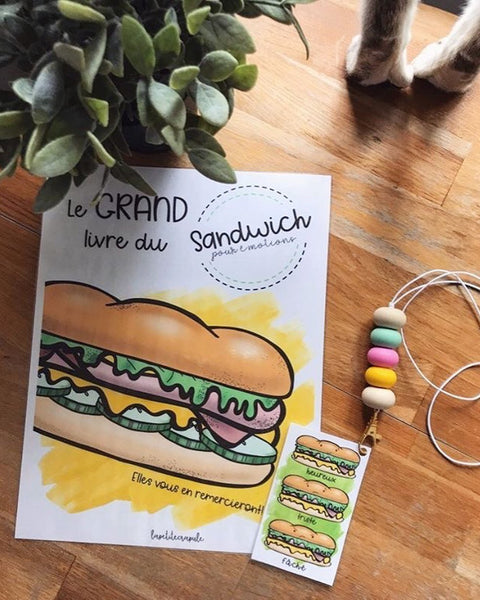 Le GRAND
livre du
Sandwich
pour émotions
Elles vous en remercieront!
heureux
triste
fâché